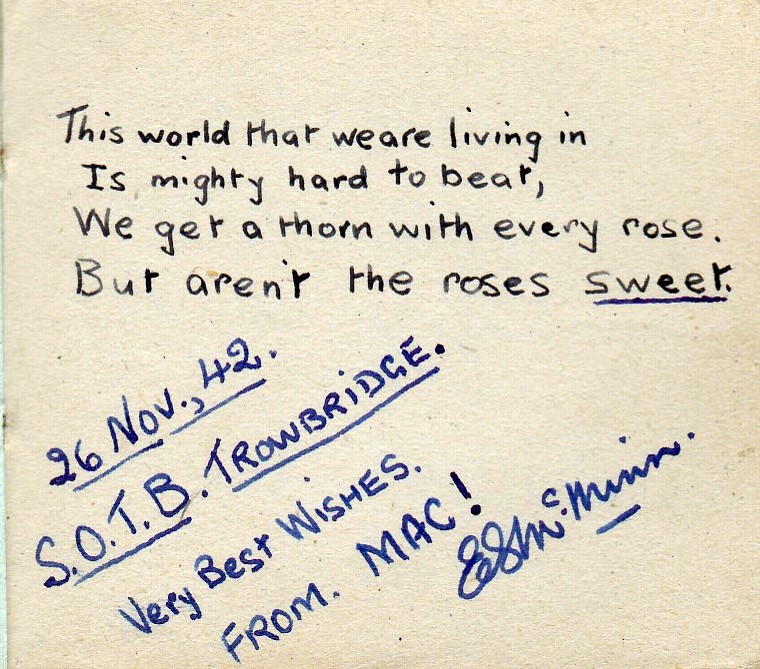 This world that we are living in
Is mighty hard to beat,
We get a thorn with every rose.
But aren't the roses sweet.
26 Nov., 42.
S.O.T.B. TROWBRIDGE.
Very Best WISHES.
FROM. MAC!
ES McMinn.